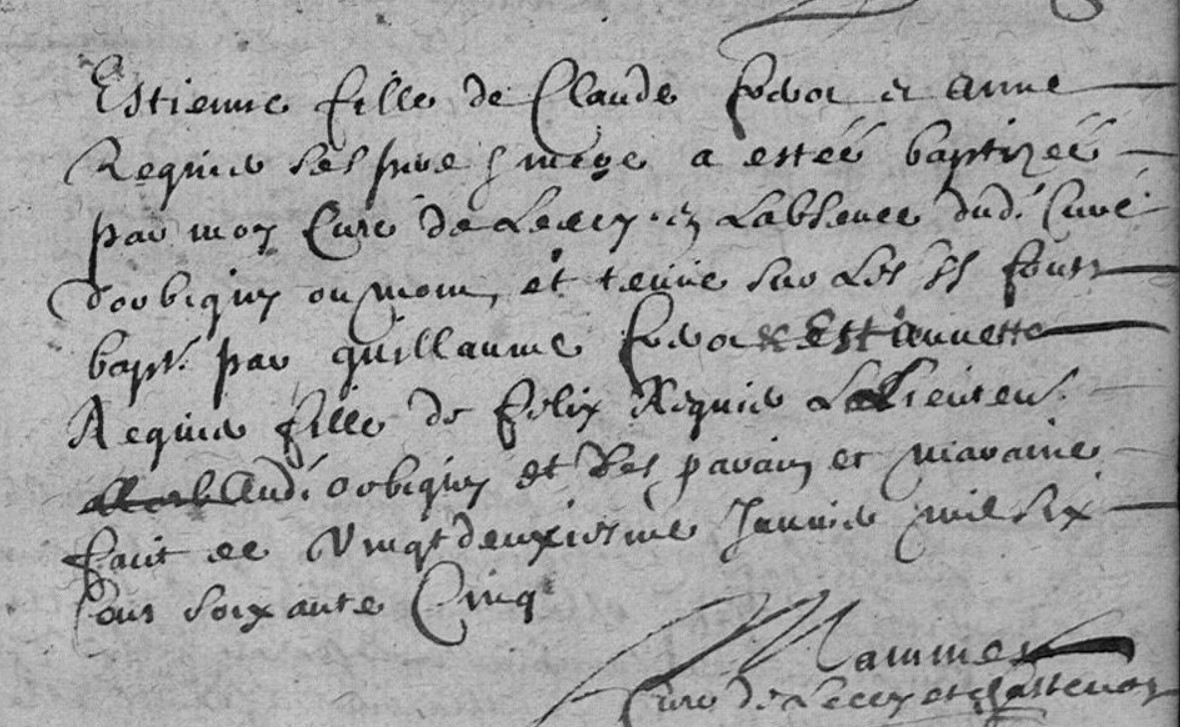 Estienne fille de Claude et Anne
Requier ses pere & mere a estée baptizée
par moy Curé de Lecey en Labsence dud. Curé
dorbigny ou mom, et tenue sur Les SS fonts
bapt. par guillaume & Estiennette
Requier fille de felix Requier
Aud. orbigny et Ses parain et maraine
faict ce Vingtdeuxiesme Janvier mil Six
Cens Soixante Cinq
Mammes
Curé de Lecey et Chastenoy